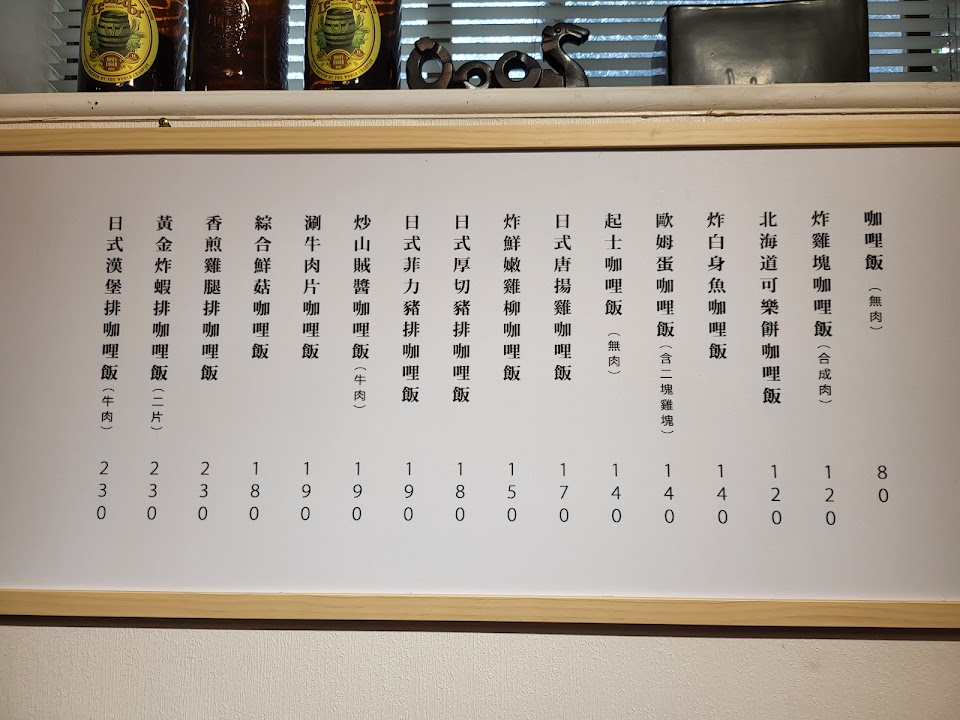 咖哩飯（無肉） 80
炸雞塊咖哩飯（合成肉） 120
北海道可樂餅咖哩飯 120
炸白身魚咖哩飯 140
歐姆蛋咖哩飯（含二塊雞塊） 140
起士咖哩飯（無肉） 140
日式唐揚雞咖哩飯 170
炸鮮嫩雞柳咖哩飯 150
日式厚切豬排咖哩飯 180
日式菲力豬排咖哩飯 190
炒山賊醬咖哩飯（牛肉） 190
涮牛肉片咖哩飯 190
綜合鮮菇咖哩飯 180
香煎雞腿排咖哩飯 230
黃金炸蝦排咖哩飯（二片） 230
日式漢堡排咖哩飯（牛肉） 230